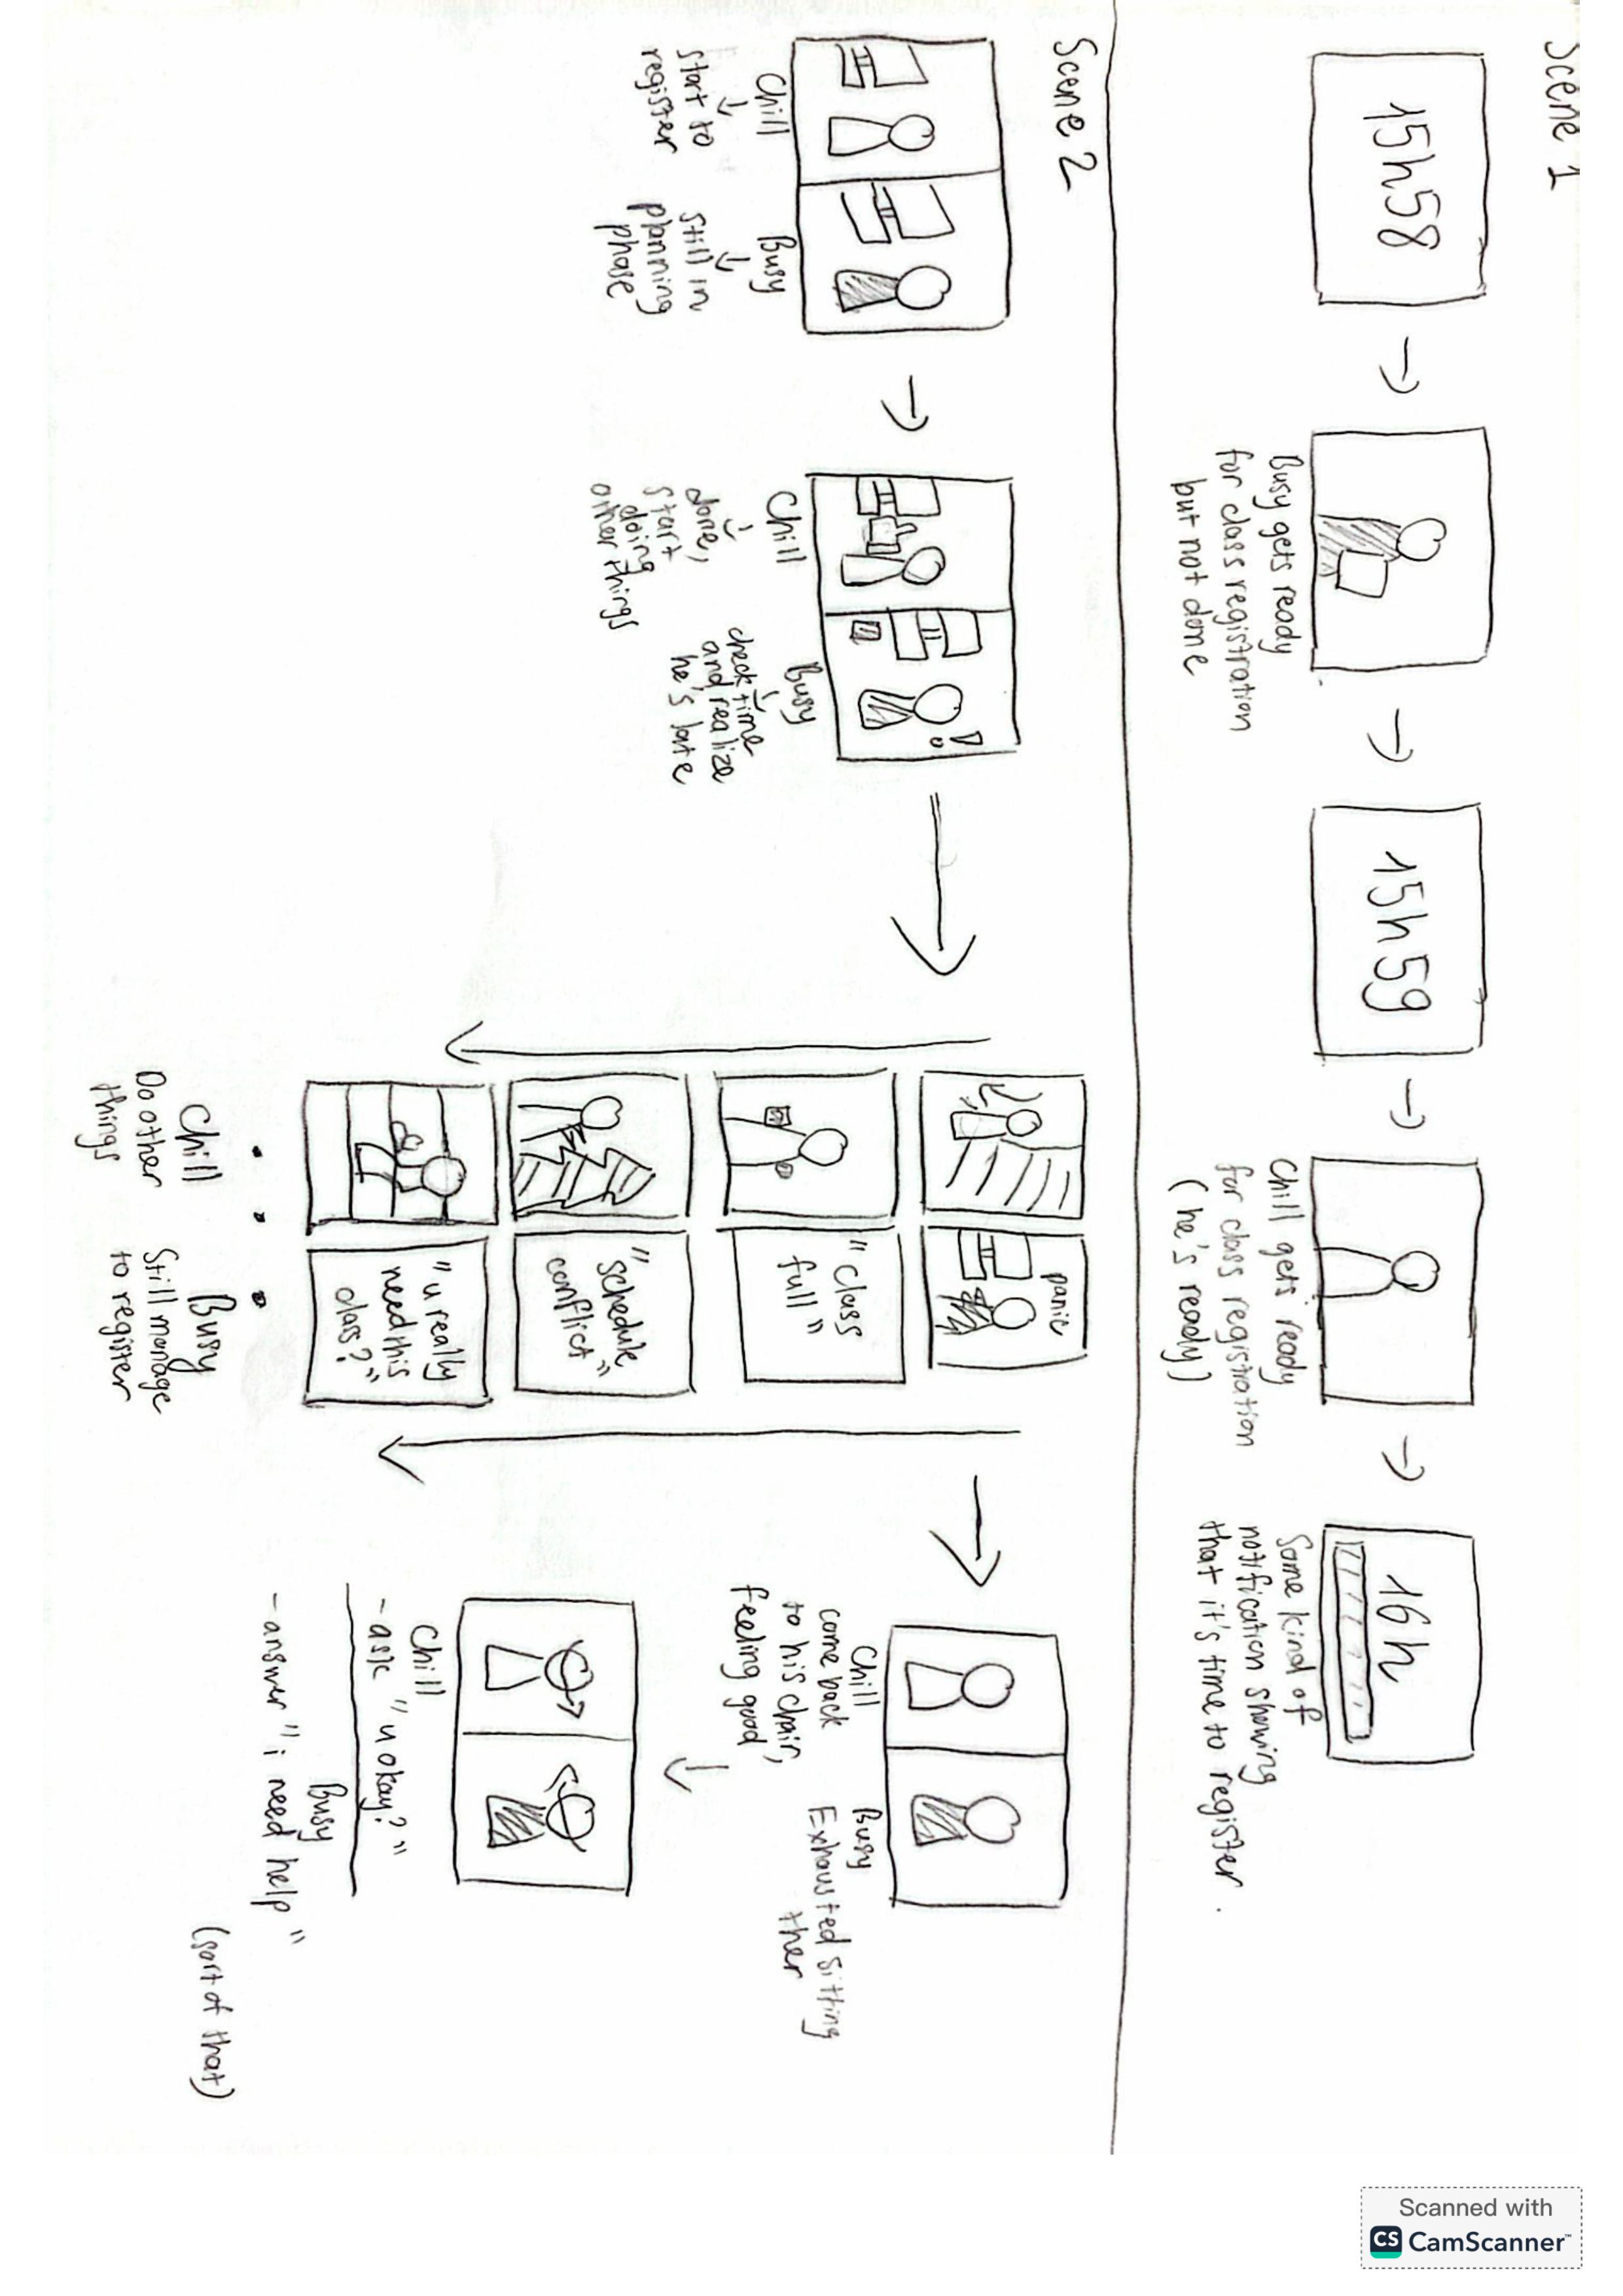 Scene 1
15h58
Busy gets ready
for class registration
but not done
15h59
Chill gets ready
for class registration
(he's ready)
16h
Some kind of
notification showing
that it's time to register.
Scene 2
Chill
start to
register
Busy
still in
planning
phase
Chill
done,
start
doing
other things
Busy
check time
and realize
he's late
panic
"class
full"
"schedule
conflict"
"u really
need this
class?"
Chill
Do other
things
Busy
Still manage
to register
Chill
come back
to his chair,
feeling good
Busy
Exhausted sitting
ther
Chill
- ask "u okay?"
Busy
- answer "i need help"
(sort of that)
Scanned with
CS CamScanner™